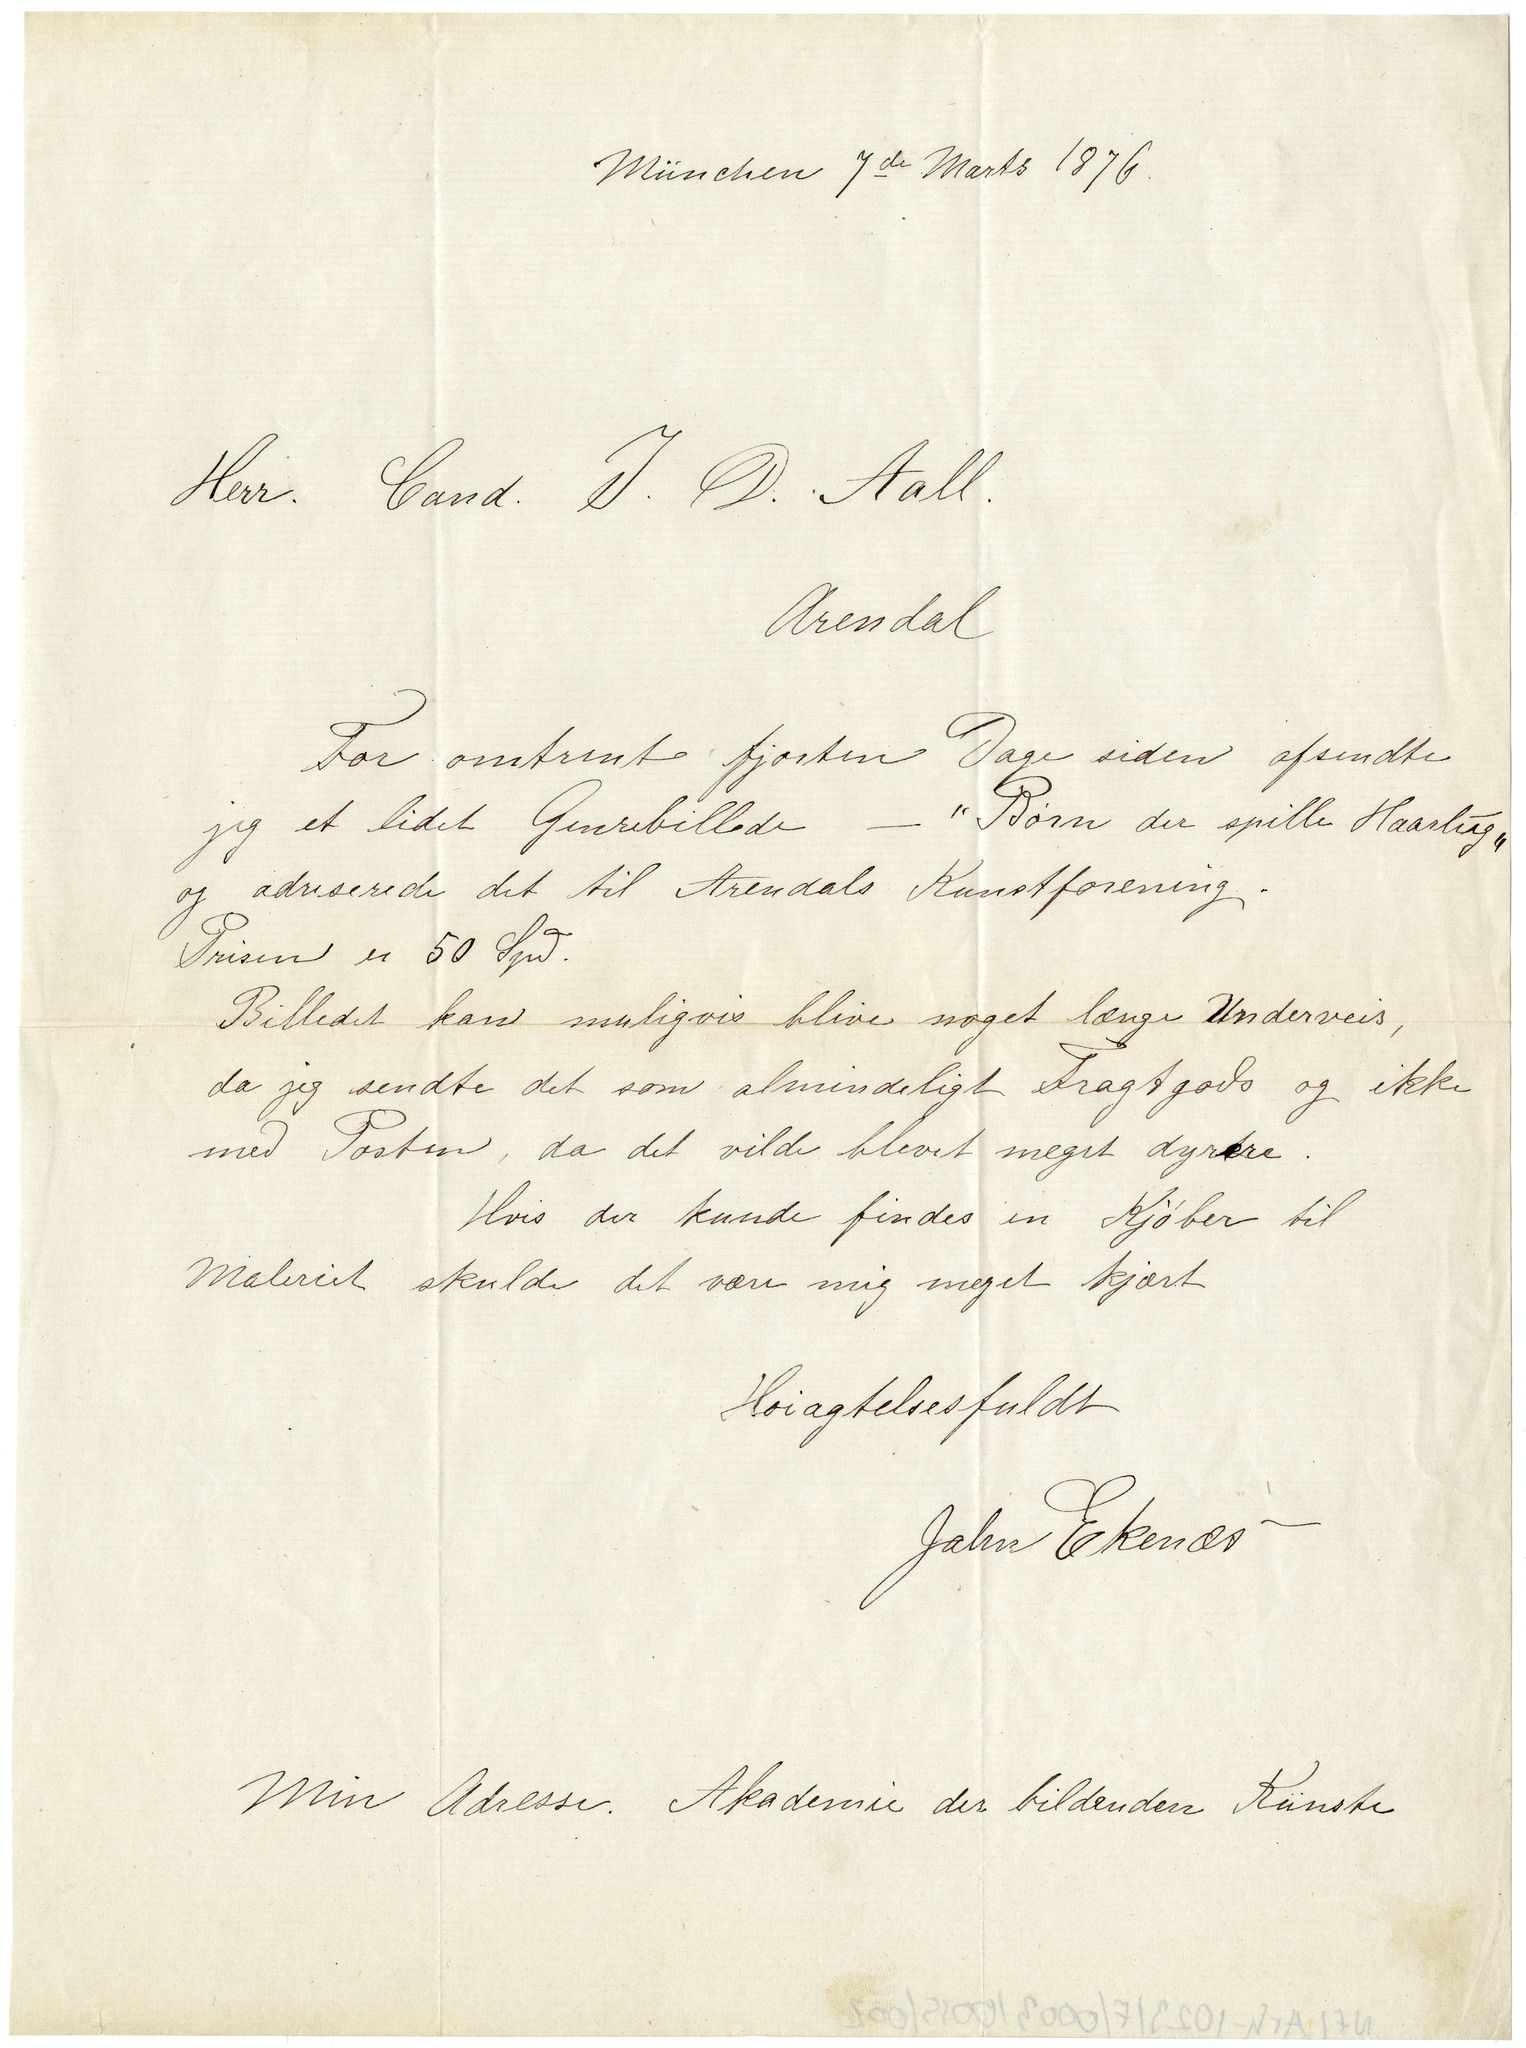 München 7de Marts 1876.
Herr. Cand. J. D. Aall.
Arendal
For omtrent fjorten Dage siden afsendte
jeg et lidet Genrebillede — "Børn der spille Haartrüg"
og adreserede det til Arendals Kunstforening.
Prisen er 50 Spd.
Billedet kan muligvis blive noget længe Underveis,
da jeg sendte det som almindeligt Fragtgods og ikke
med Posten, da det vilde blevet meget dyrere.
Hvis der kunde findes en Kjøber til
Maleriet skulde det være mig meget kjært
Hoiagtelsesfuldt
Jahn Ekenæs
Min Adresse. Akademie der bildenden Künste